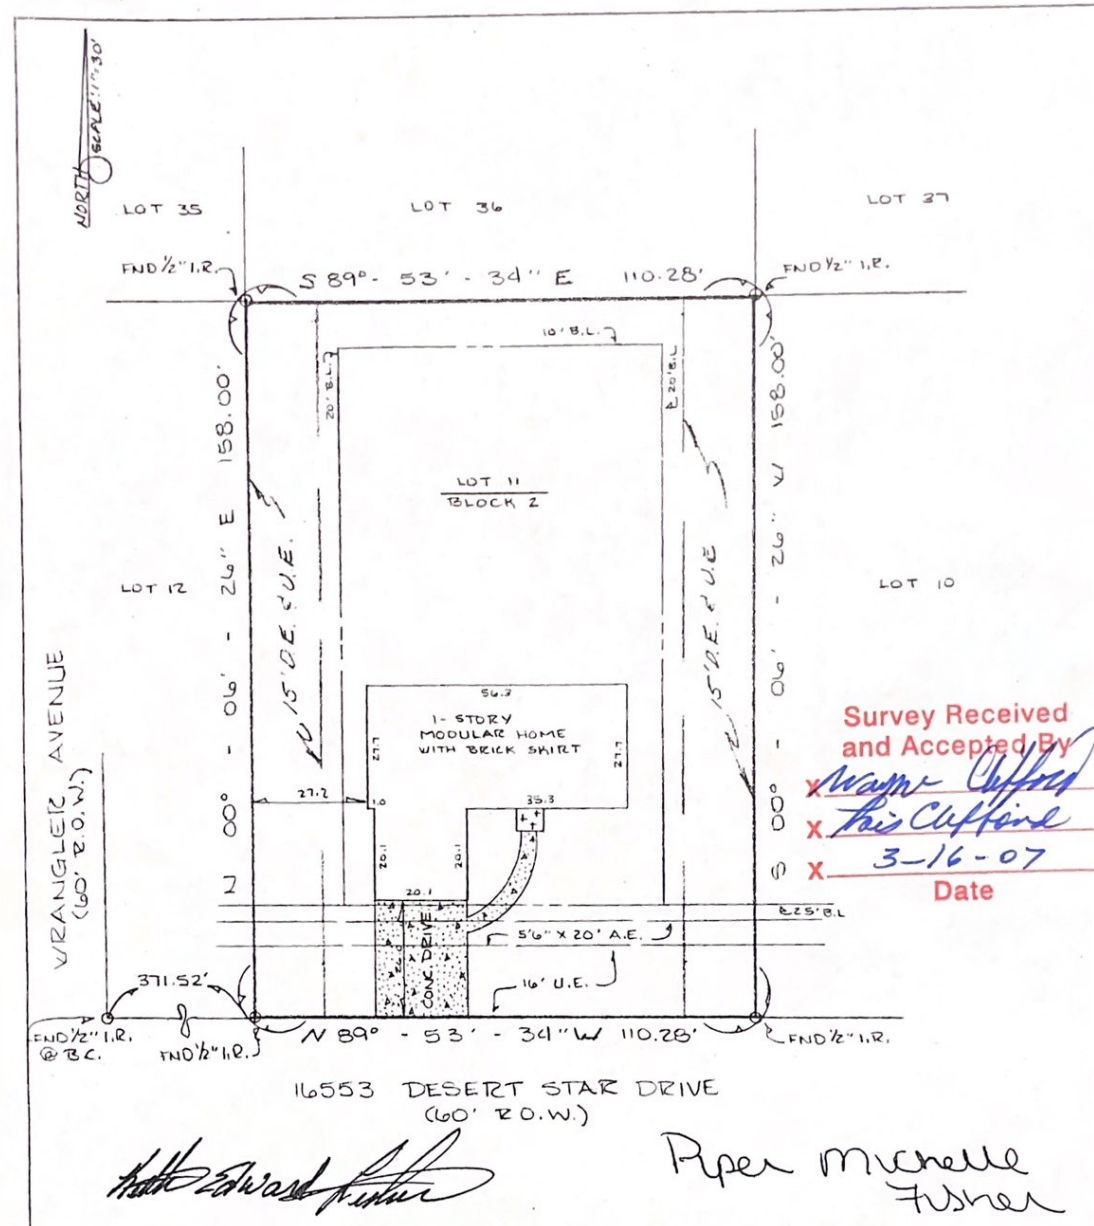 NORTH
SCALE: 1"=30'
LOT 35
LOT 36
LOT 37
FND 1/2" I.R.
S 89° - 53' - 34" E 110.28'
FND 1/2" I.R.
10' B.L.
20' B.L.
20' B.L.
N 00° - 06' - 26" E 158.00'
S 00° - 06' - 26" W 158.00'
LOT 11
BLOCK 2
LOT 12
LOT 10
15' D.E. & U.E.
15' D.E. & U.E
56.3
1-STORY
MODULAR HOME
WITH BRICK SKIRT
27.7
27.7
27.2
1.0
35.3
20.1
20.1
20.1
CONC DRIVE
25' B.L
5'6" X 20' A.E.
16' U.E.
WRANGLER AVENUE
(60' R.O.W.)
371.52'
FND 1/2" I.R.
@ B.C.
FND 1/2" I.R.
N 89° - 53' - 34" W 110.28'
FND 1/2" I.R.
16553 DESERT STAR DRIVE
(60' R.O.W.)
Survey Received
and Accepted By
X Wayne Clifford
X Clifford
X 3-16-07
Date
Edward
Piper Michelle
Fisher